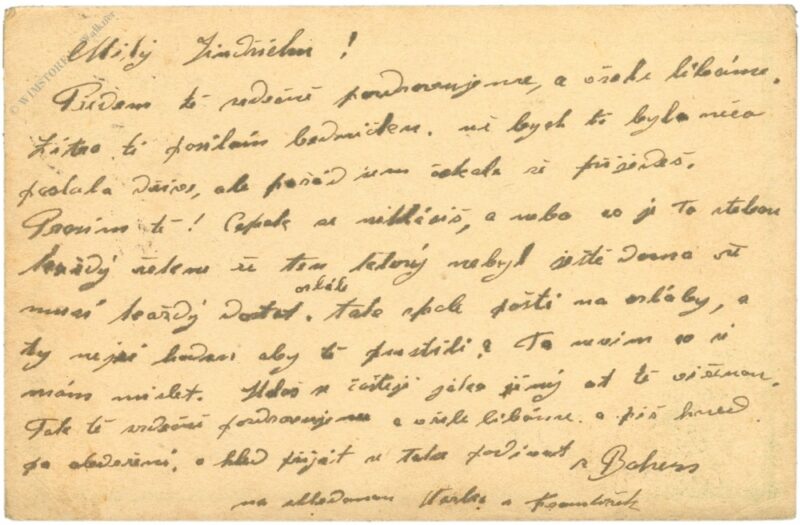 © WIMSTORE
Milý Jindřichu!
Předem tě srdečně pozdravujeme, a všeli líbáme.
Zítra ti posílám bedničku. už bych ti byla něco
poslala dříve, ale pořád jsem čekala že přijedeš.
Prosím tě! Copak se nehlásíš, a nebo co je to s tebou
každý řekne že ten který nebyl ještě doma že
musí každý dostat orláb. tak pošti na orláby, a
ty nejsi hoden aby tě pustili? To nevím co si
mám myslet. Hlaš se častěji jako jiný
Tak tě srdečně pozdravujeme a líbáme. a piš hned
po obdržení, a hleď přijet se také podívat s Bohem
na shledanou a František